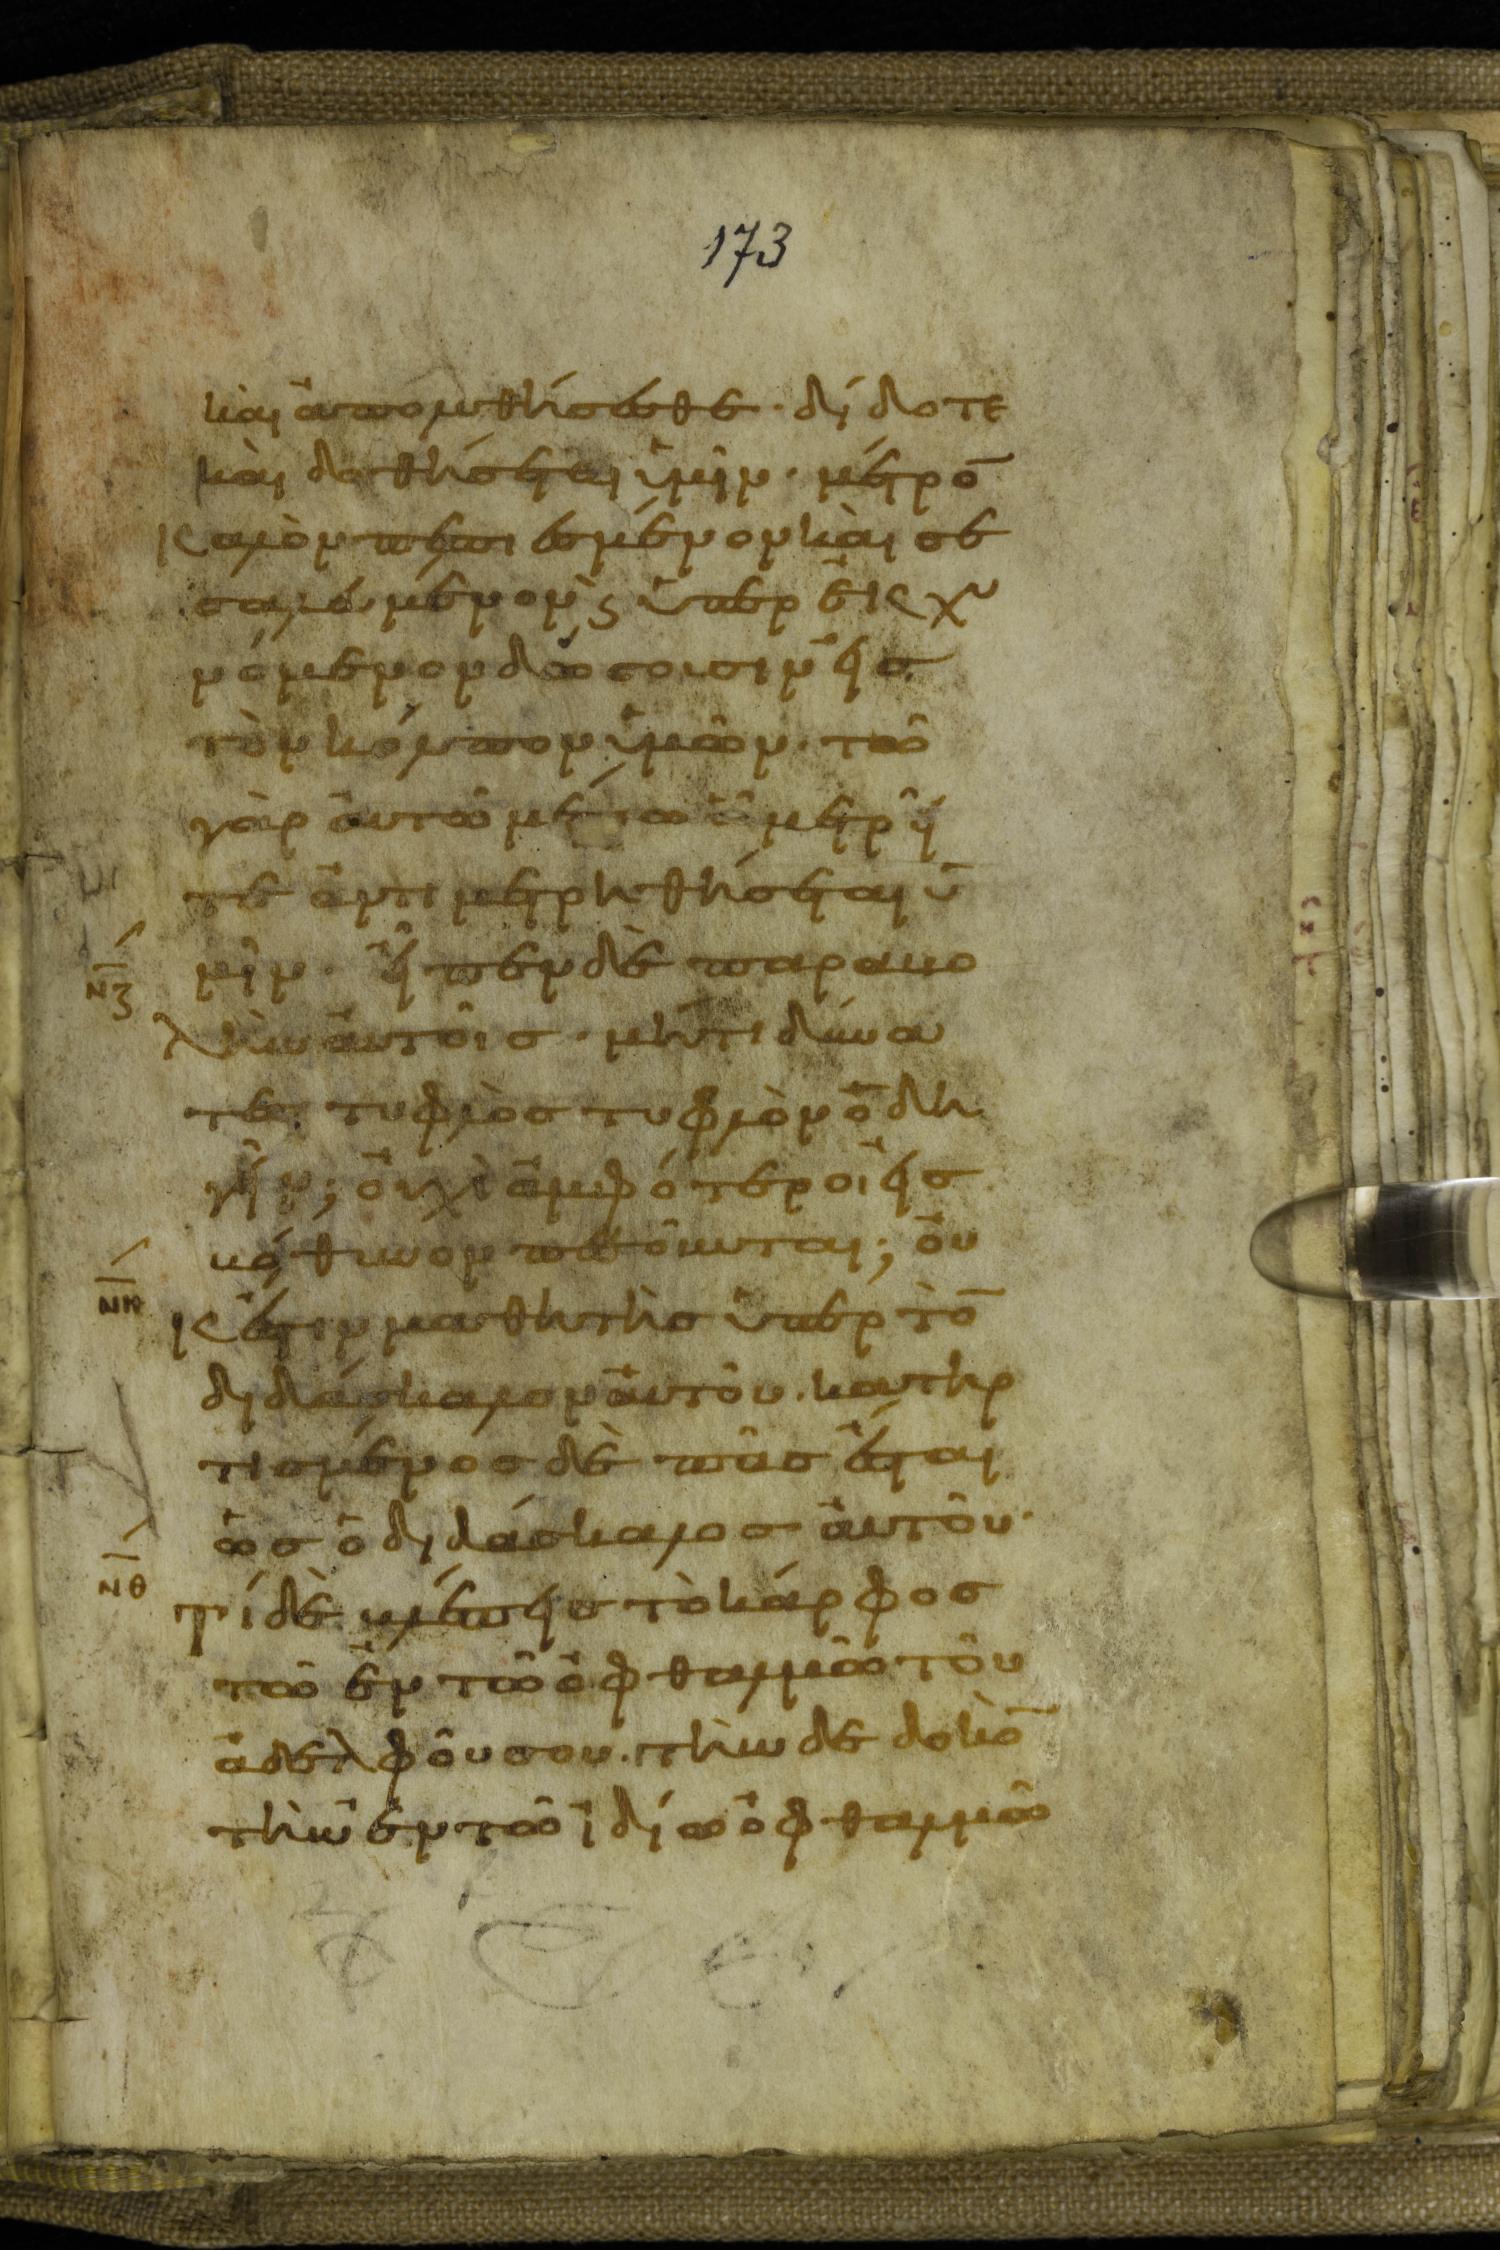 173
καὶ ἀπολυθήσεσθε · δίδοτε
καὶ δοθήσεται ὑμῖν · μέτρο̅
καλὸν πεπιεσμένον καὶ σε
σαλευμένον ϗ ὑπερεκχυ
νόμενον δώσουσιν εἰς
τὸν κόλπον ὑμῶν · τῶ
γὰρ αὐτῶ μέτρω ὧ μετρεῖ
τε ἀντιμετρηθήσεται ὑ
μῖν · εἶπεν δὲ παραβο
ν̅ζ
λὴν αὐτοῖς · μήτι δύνα
ται τυφλὸς τυφλὸν ὁδη
γεῖν; οὐχὶ ἀμφότεροι εἰς
βόθυνον πεσοῦνται; οὐ
ν̅η
κ ἔστιν μαθητὴς ὑπὲρ τὸ̅
διδάσκαλον αὐτοῦ · κατηρ
τισμένος δὲ πᾶς ἔσται
ὡς ὁ διδάσκαλος αὐτοῦ ·
ν̅θ
τί δὲ βλέπεις τὸ κάρφος
τῶ ἐν τῶ ὀφθαλμῶ τοῦ
ἀδελφοῦ σου · τὴν δε δοκὸ̅
τὴν ἐν τῶ ἰδίω ὀφθαλμῶ